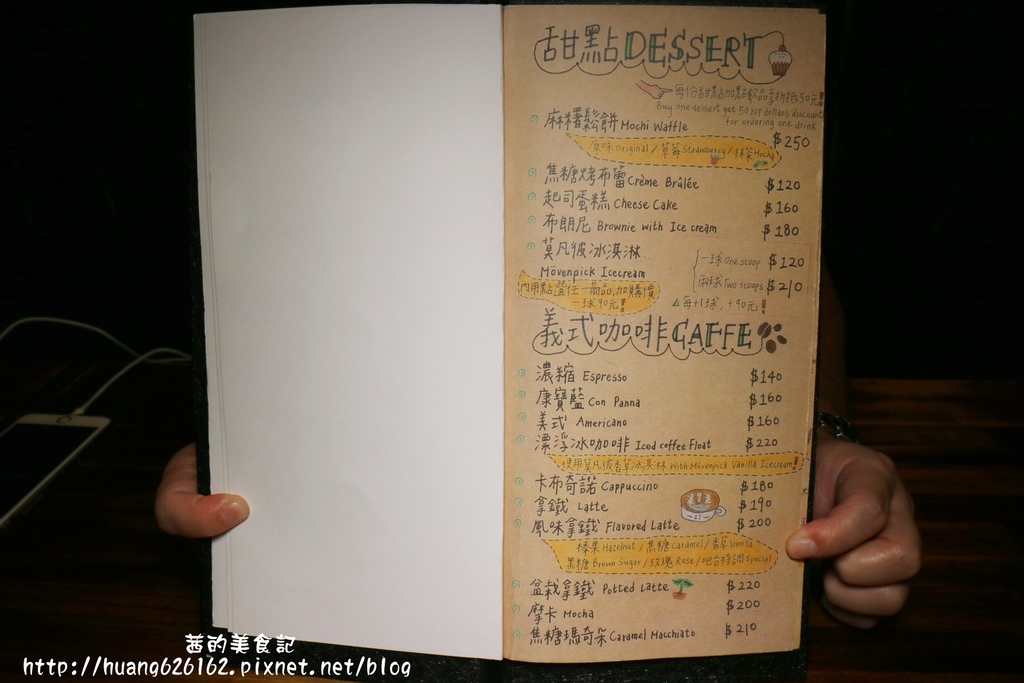 甜點 DESSERT
每1份甜點加點飲品享折抵50元!
Buy one dessert get 50 NT dollars discount
for ordering one drink
麻糬鬆餅 Mochi Waffle $250
原味 Original / 草莓 Strawberry / 抹茶 Mocha
焦糖烤布蕾 Crème Brûlée $120
起司蛋糕 Cheese Cake $160
布朗尼 Brownie with Ice cream $180
莫凡彼冰淇淋
Mövenpick Icecream
一球 One scoop $120
兩球 Two scoops $210
內用點選任一商品,加購價
一球90元!
每+1球,+90元!
義式咖啡 CAFFE
濃縮 Espresso $140
康寶藍 Con Panna $160
美式 Americano $160
漂浮冰咖啡 Iced coffee Float $220
使用莫凡彼香草冰淇淋 with Mövenpick Vanilla Icecream!
卡布奇諾 Cappuccino $180
拿鐵 Latte $190
風味拿鐵 Flavored Latte $200
榛果 Hazelnut / 焦糖 Caramel / 香草 Vanilla
黑糖 Brown Sugar / 玫瑰 Rose / 吧台特調 Special
盆栽拿鐵 Potted Latte $220
摩卡 Mocha $200
焦糖瑪奇朵 Caramel Macchiato $210
茜的美食記
http://huang626162.pixnet.net/blog